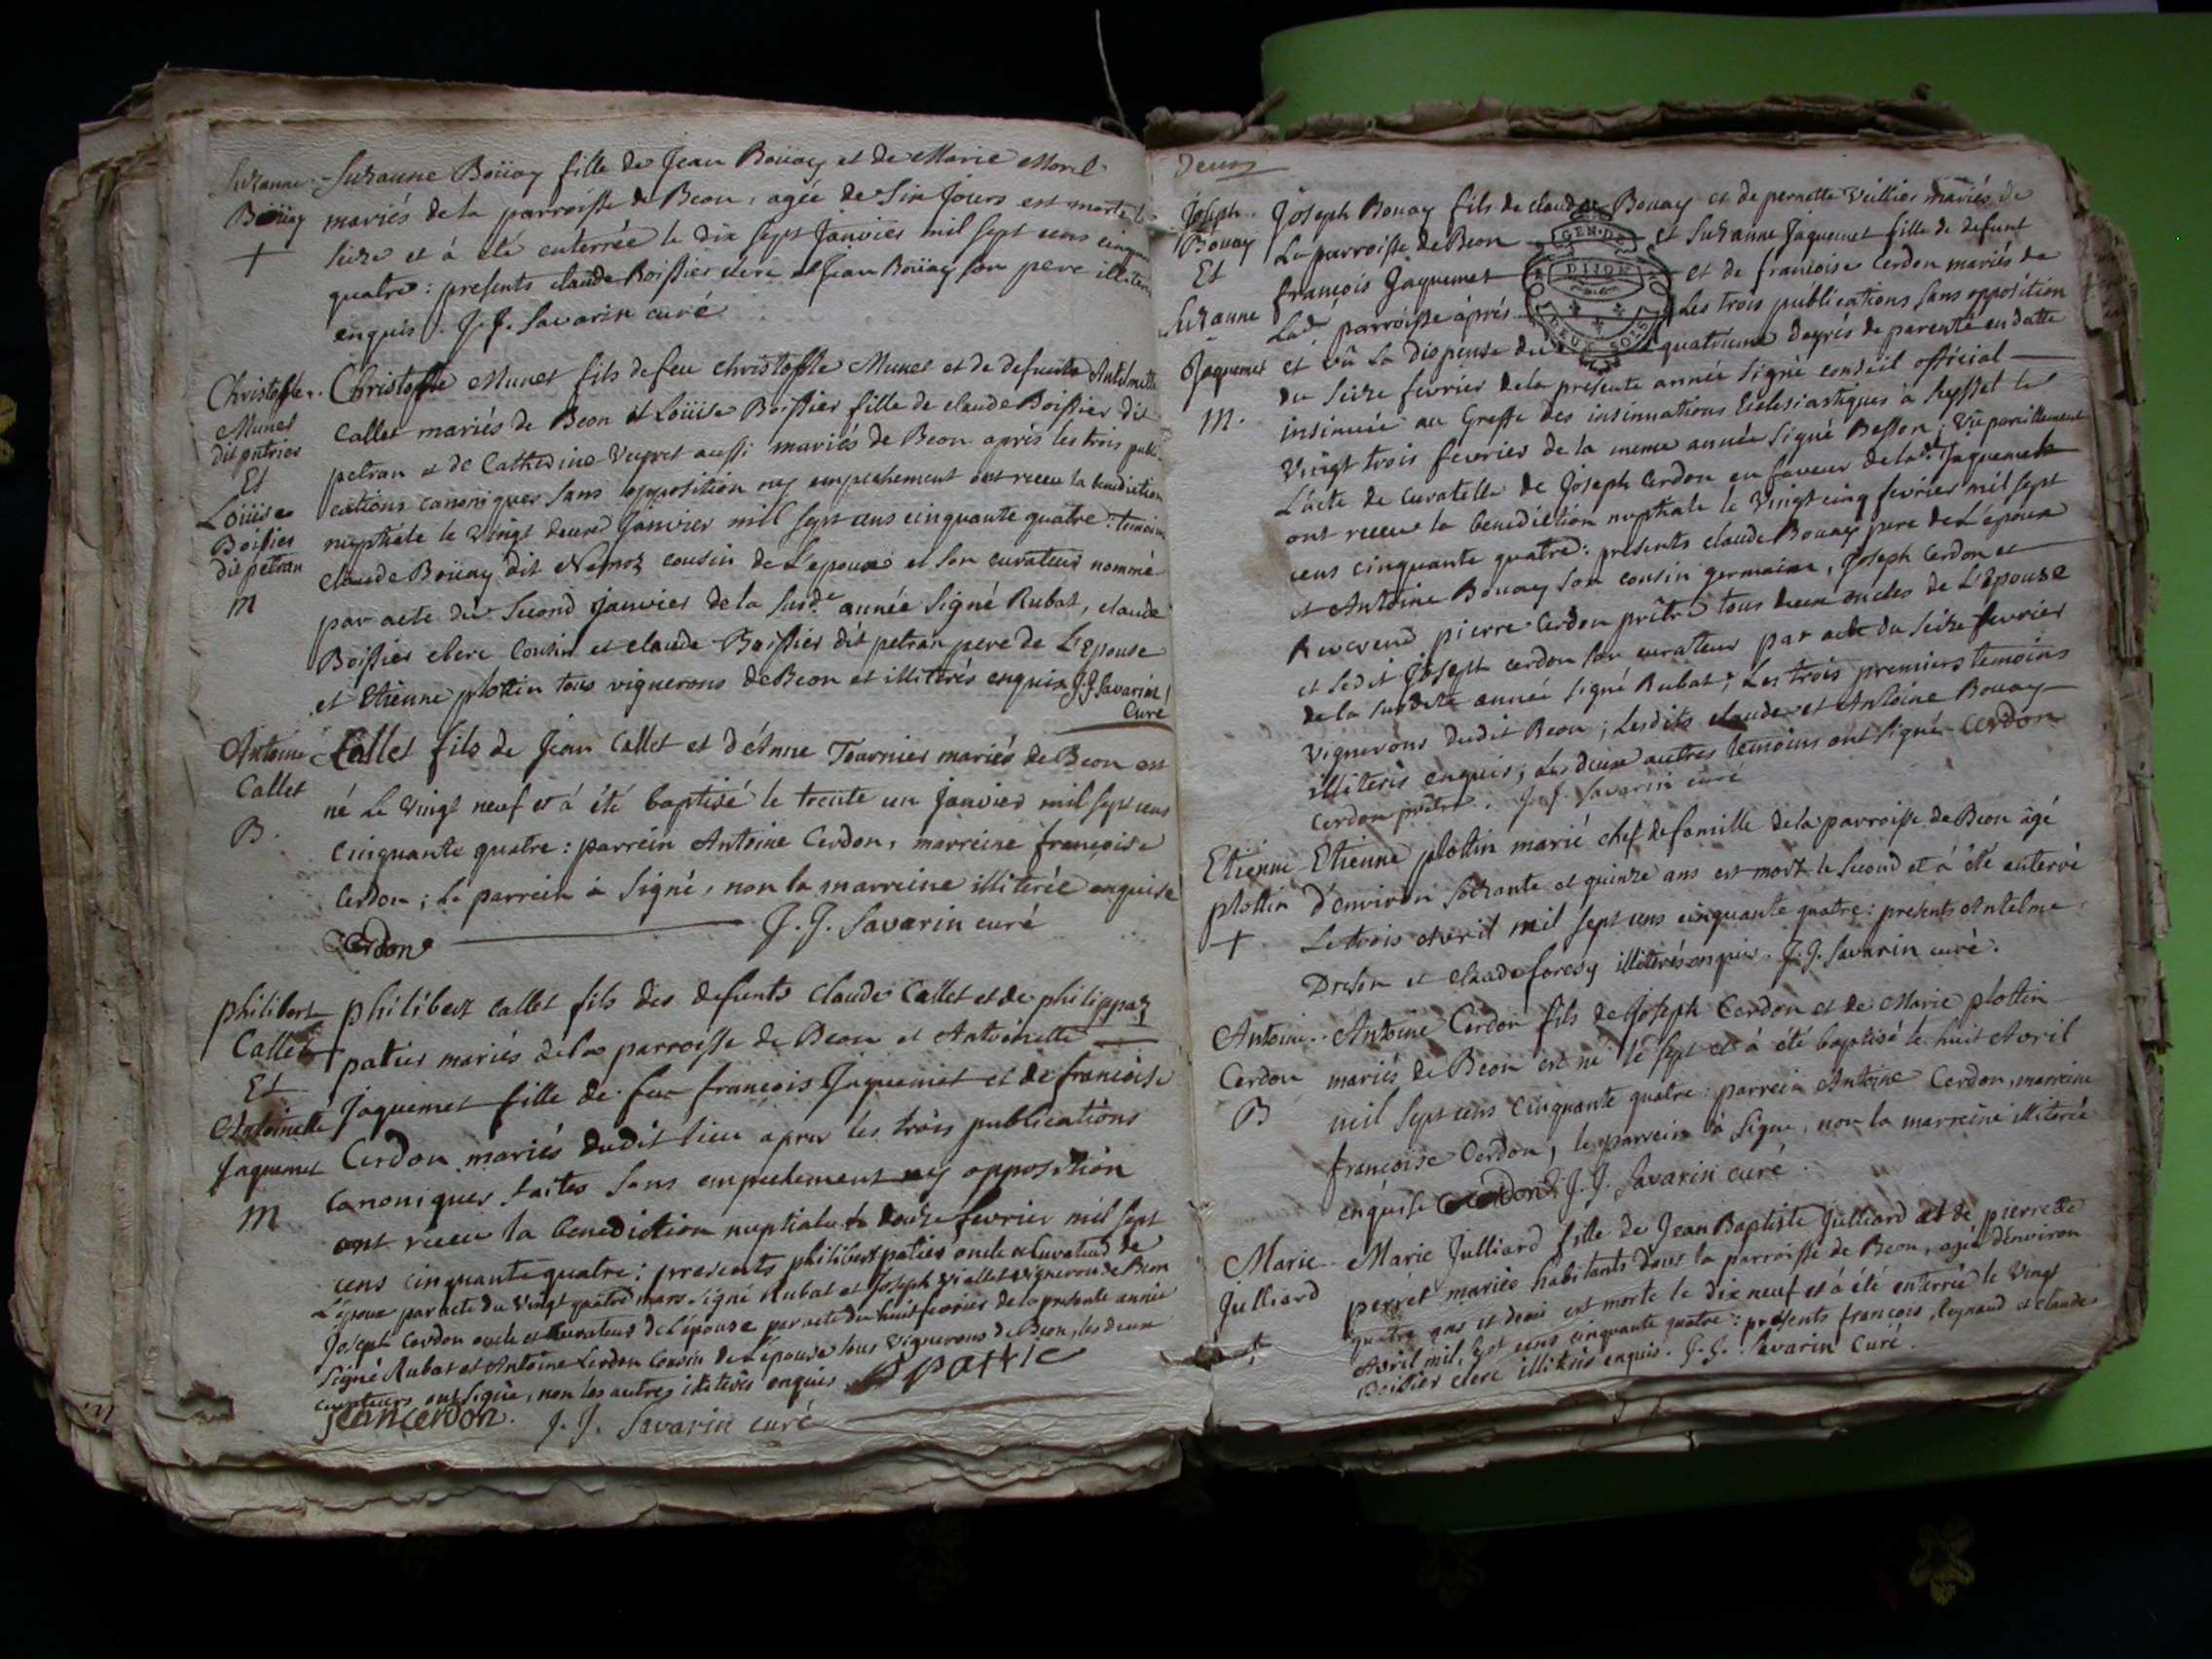 Suzanne
Boüay
+
Suzanne Boüay fille de Jean Boüay et de Marie Morel
mariés de la parroisse de Beon, agée de Six Jours est morte le
Seize et à été enterrée le dix sept Janvier mil sept cens cinquante
quatre : presents claude Boissier clerc et Jean Boüay son pere illiterés
enquis. J. J. Savarin curé
Christofle
Munet
dit
Et
Loüise
Boissier
dit petran
M
Christofle Munet fils de feu Christofle Munet et de defunte Antelmette
Callet mariés de Beon et Loüise Boissier fille de claude Boissier dit
petran et de Catherine Veyret aussi mariés de Beon aprés les trois publi-
cations canoniques sans opposition ny empechement ont receu la benediction
nuptiale le vingt deux Janvier mil sept cens cinquante quatre : temoins
claude Boüay dit Nemoz cousin de L'epoux et son curateur nommé
par acte du Second janvier de la susde année Signé Rubat, claude
Boissier clerc Cousin et claude Boissier dit petran pere de L'Epouse
et Etienne plottin tous vignerons de Beon et illiterés enquis J. J. Savarin
Curé
Antoine
Callet
B.
Callet fils de Jean Callet et d'Anne Tournier mariés de Beon est
né Le Vingt neuf et à été baptisé le trente un janvier mil sept cens
cinquante quatre : parrein Antoine Cerdon, marreine françoise
Cerdon ; Le parrein à Signé, non la marreine illiterée enquise
Cerdon
J. J. Savarin curé
philibert
Callet
Et
Antoinette
Jaquemet
M
philibert callet fils des defunts Claude Callet et de philippaz
patier mariés de la parroisse de Beon et Antoinette
Jaquemet fille de feu françois Jaquemet et de françoise
Cerdon mariés dudit lieu aprés les trois publications
Canoniques faites Sans empechement ny opposition
ont receu la benediction nuptiale le douze fevrier mil sept
cens cinquante quatre : presents philibert patier oncle et Curateur de
L'époux par acte du Vingt quatre mars signé Rubat et Joseph Viallet vigneron de Beon
Joseph Cerdon oncle et Curateur de L'épouse par acte du huit fevrier de la presente année
Signé Rubat et Antoine Cerdon Cousin de L'épouse tous Vignerons de Beon, les deux
curateurs ont Signé, non les autres illiterés enquis
Cerdon. J. J. Savarin curé
Deux
Joseph
Bouay
Et
Suzanne
Jaquemet
M.
GEN. DE
DIJON
DEUX SOLS
Joseph Bouay fils de claude Bouay et de pernette Veillier mariés de
La parroisse de Beon et Suzanne Jaquemet fille de defunt
françois Jaquemet et de françoise Cerdon mariés de
Lade parroisse aprés Les trois publications sans opposition
et vû La dispense du quatrieme degrés de parenté en datte
du Seize fevrier de la presente année Signé conseil official
insinuée au Greffe des insinuations Ecclesiastiques à Seyssel le
Vingt trois fevrier de la meme année Signé Besson ; Vû pareillement
L'acte de Curatelle de Joseph Cerdon en faveur de lade Jaquemet
ont receu la benediction nuptiale le Vingt cinq fevrier mil sept
cens cinquante quatre : presents claude Bouay pere de L'époux
et Antoine Bouay son cousin germain, Joseph Cerdon et
Reverend pierre Cerdon prêtre tous deux oncles de L'Epouse
et Ledit Joseph cerdon son curateur par acte du Seize fevrier
de la susdite année signé Rubat ; Les trois premiers temoins
vignerons dudit Beon ; Lesdits claude et Antoine Bouay
illiterés enquis ; Les deux autres temoins ont Signé Cerdon
Cerdon prêtre. J. J. Savarin curé
Etienne
plottin
+
Etienne plottin marié chef de famille de la parroisse de Beon âgé
d'environ soixante et quinze ans est mort le Second et à été enterré
Le trois Avril mil sept cens cinquante quatre : presents Antelme
et claude illiterés enquis. J. J. Savarin curé.
Antoine
Cerdon
B
Antoine Cerdon fils de Joseph Cerdon et de Marie plottin
mariés de Beon est né le sept et à été baptisé le huit Avril
mil sept cens cinquante quatre : parrein Antoine Cerdon, marreine
françoise Cerdon, le parrein à signé, non la marreine illiterée
enquise Cerdon J. J. Savarin curé.
Marie
Julliard
+
Marie Julliard fille de Jean Baptiste Julliard et de pierrette
perret mariés habitants dans la parroisse de Beon, agée d'environ
quatre ans et demi est morte le dix neuf et à été enterrée le Vingt
Avril mil sept cens cinquante quatre : présents françois Reynaud et claude
Boissier clerc illiterés enquis. J. J. Savarin Curé.